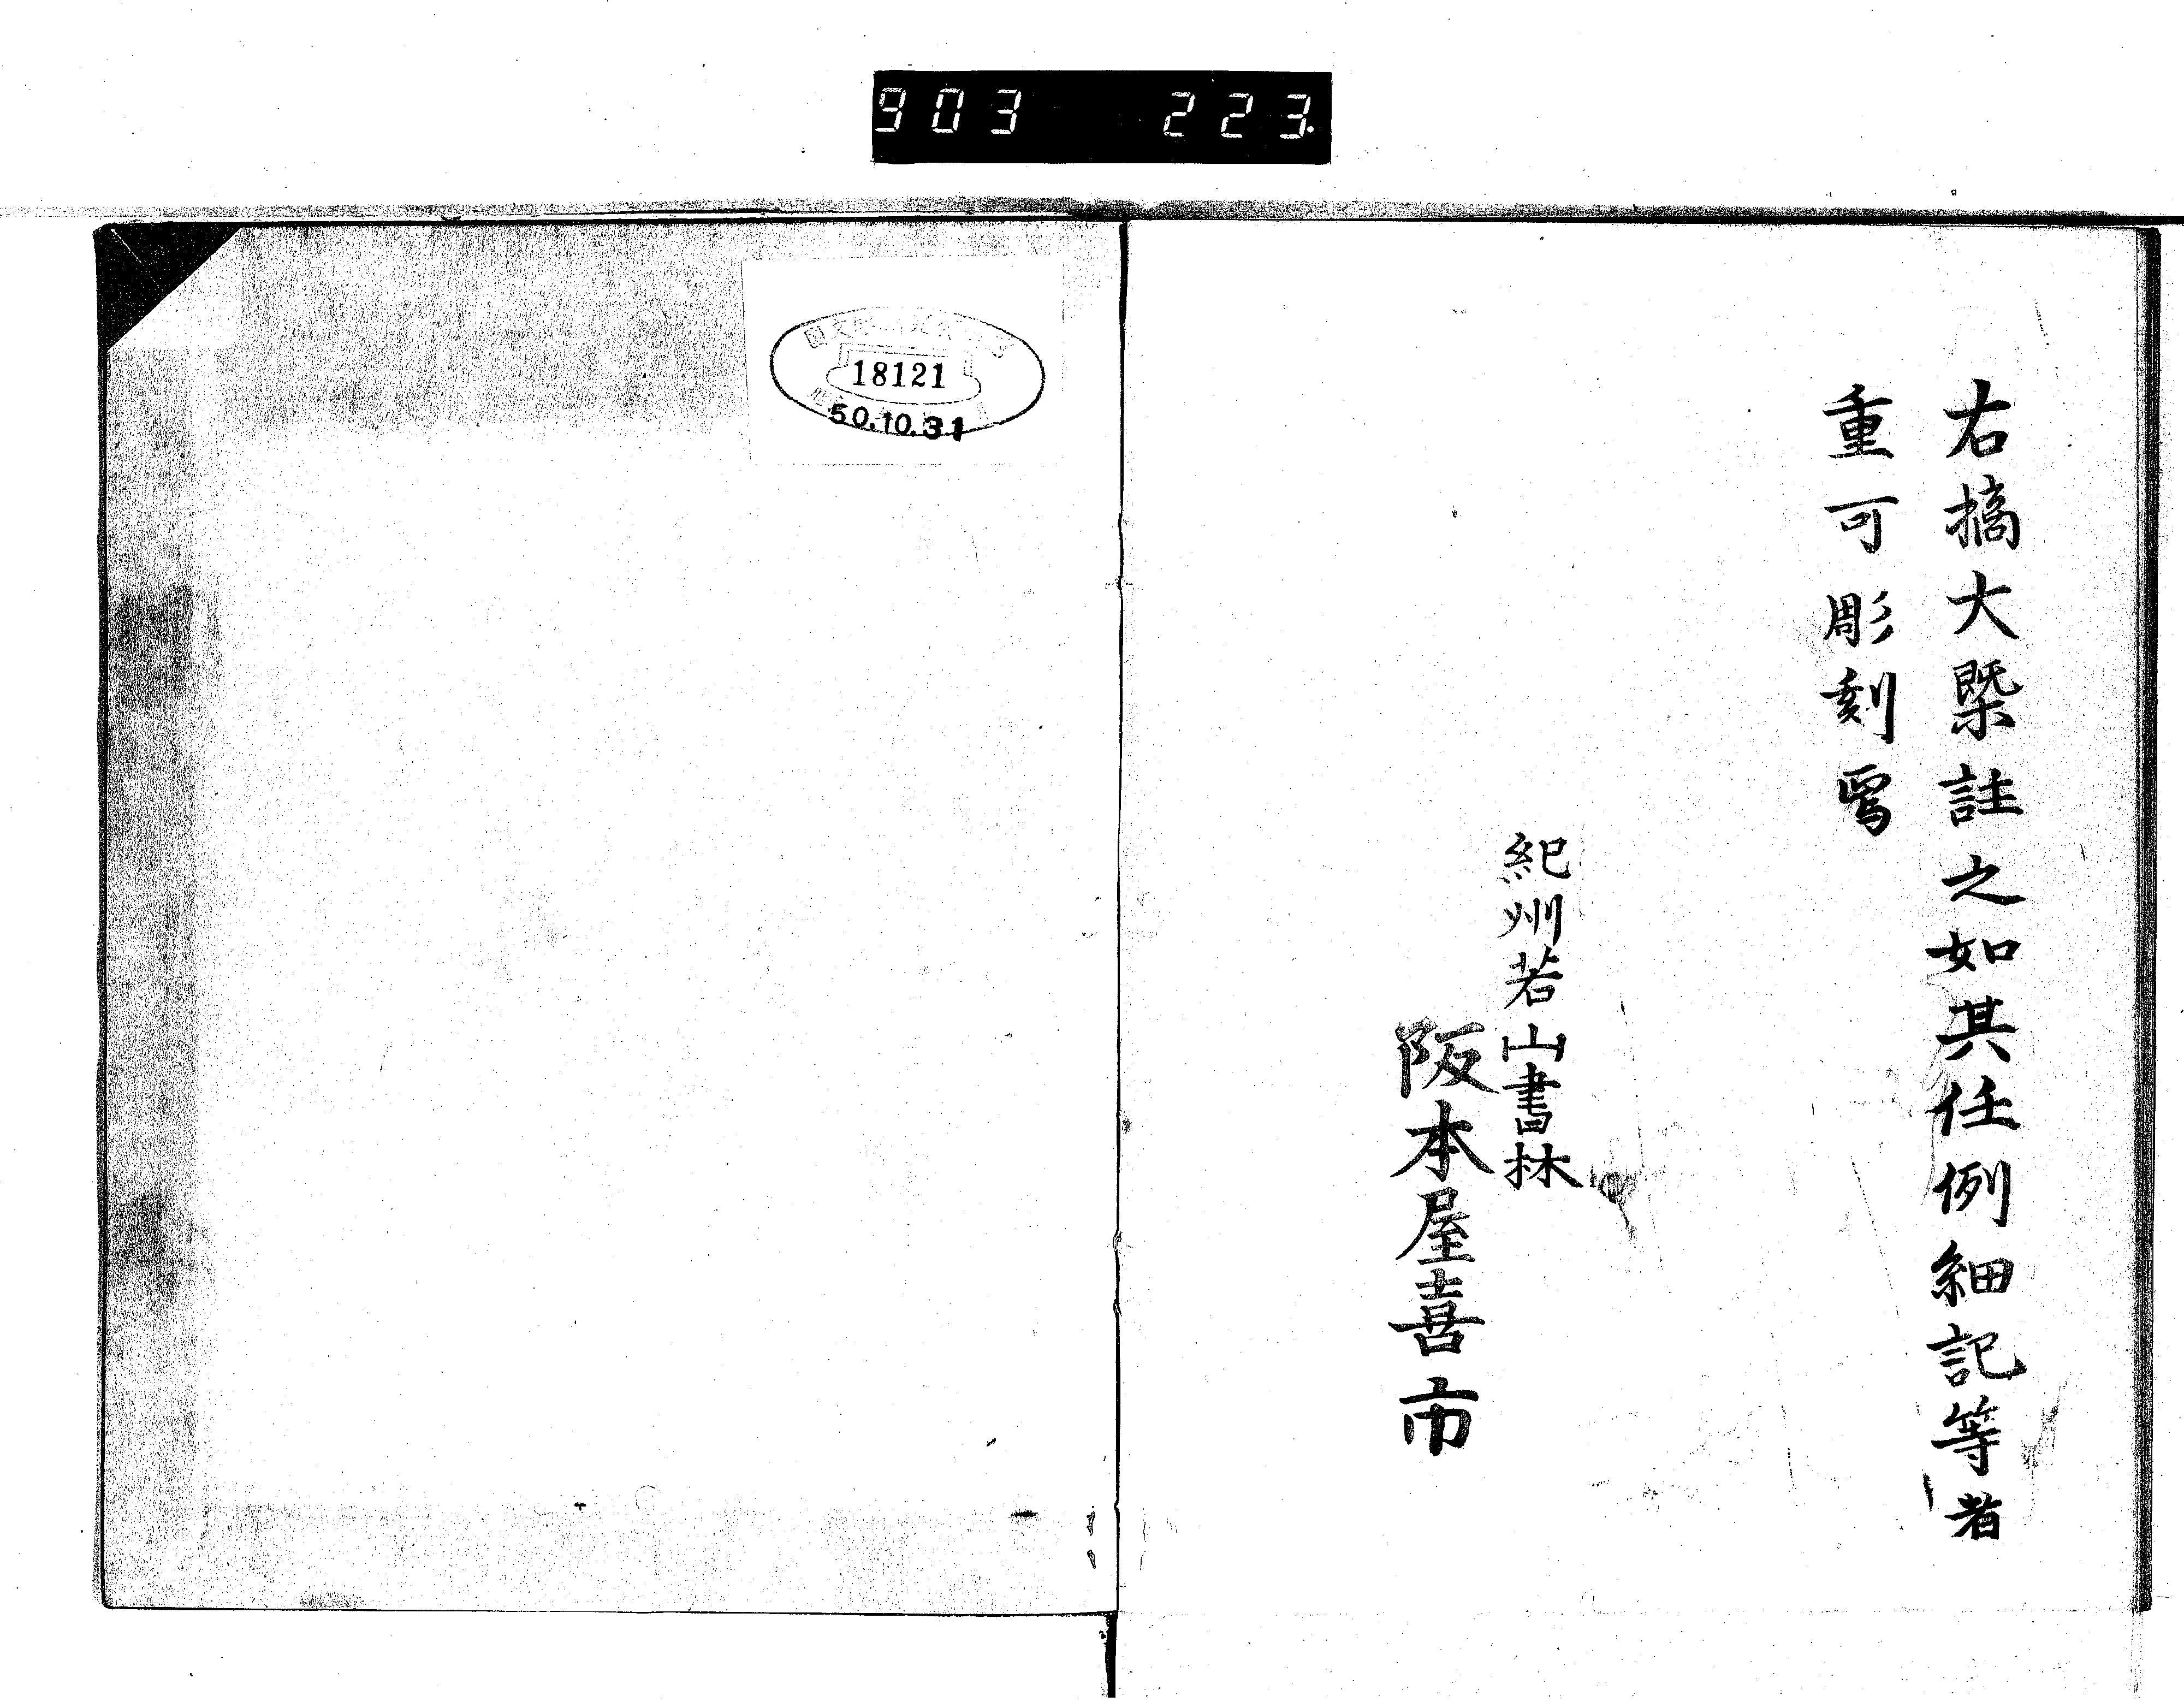 903 223
右摘大槩註之如其任例細記等者
重可彫刻焉
紀州若山書林
阪本屋喜市
18121
50.10.31